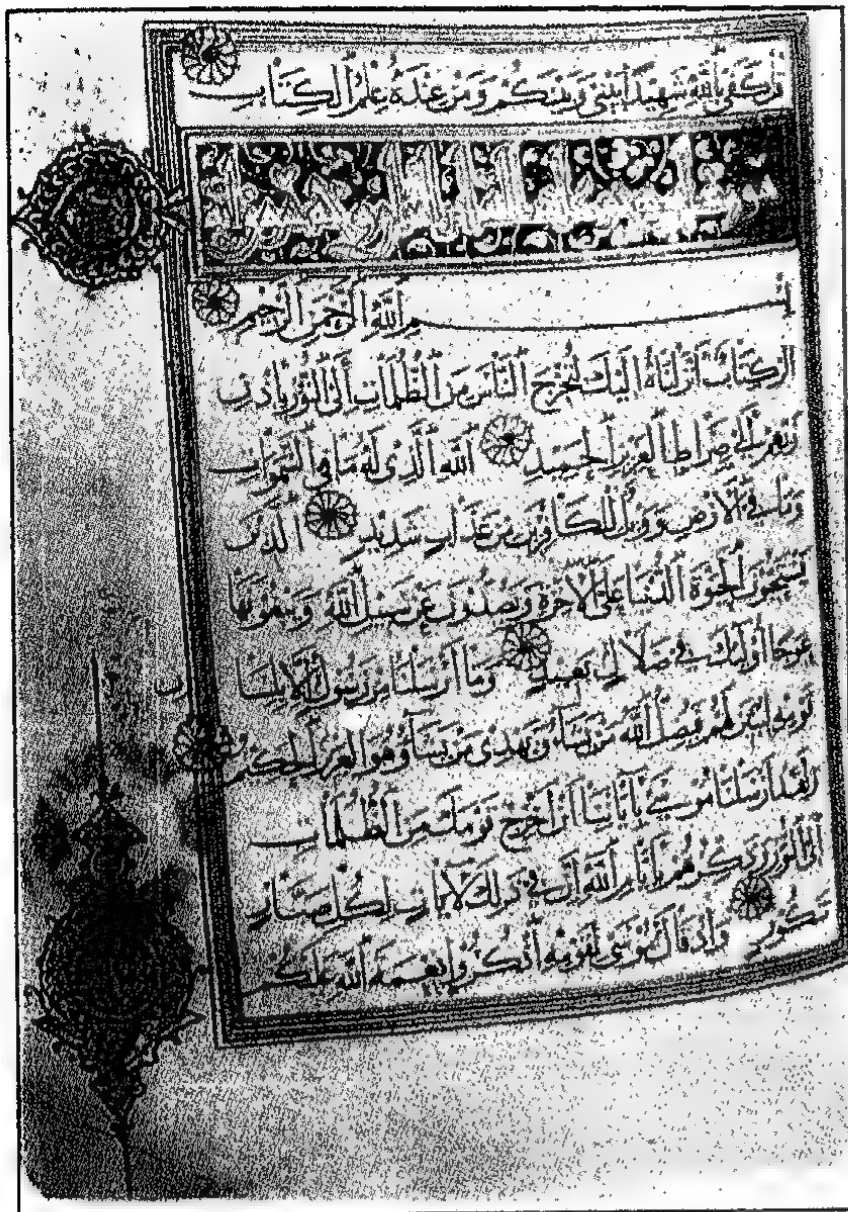 قل كفى بالله شهيدا بيني وبينكم ومن عنده علم الكتاب
بسم الله الرحمن الرحيم
الر كتاب أنزلناه إليك لتخرج الناس من الظلمات إلى النور بإذن
ربهم إلى صراط العزيز الحميد الله الذي له ما في السموات
وما في الأرض وويل للكافرين من عذاب شديد الذين
يستحبون الحيوة الدنيا على الآخرة ويصدون عن سبيل الله ويبغونها
عوجا أولئك في ضلال بعيد وما أرسلنا من رسول إلا بلسان
قومه ليبين لهم فيضل الله من يشاء ويهدي من يشاء وهو العزيز الحكيم و
لقد أرسلنا موسى بآياتنا أن أخرج قومك من الظلمات
إلى النور وذكرهم بأيام الله إن في ذلك لآيات لكل صبار
شكور وإذ قال موسى لقومه اذكروا نعمة الله عليكم